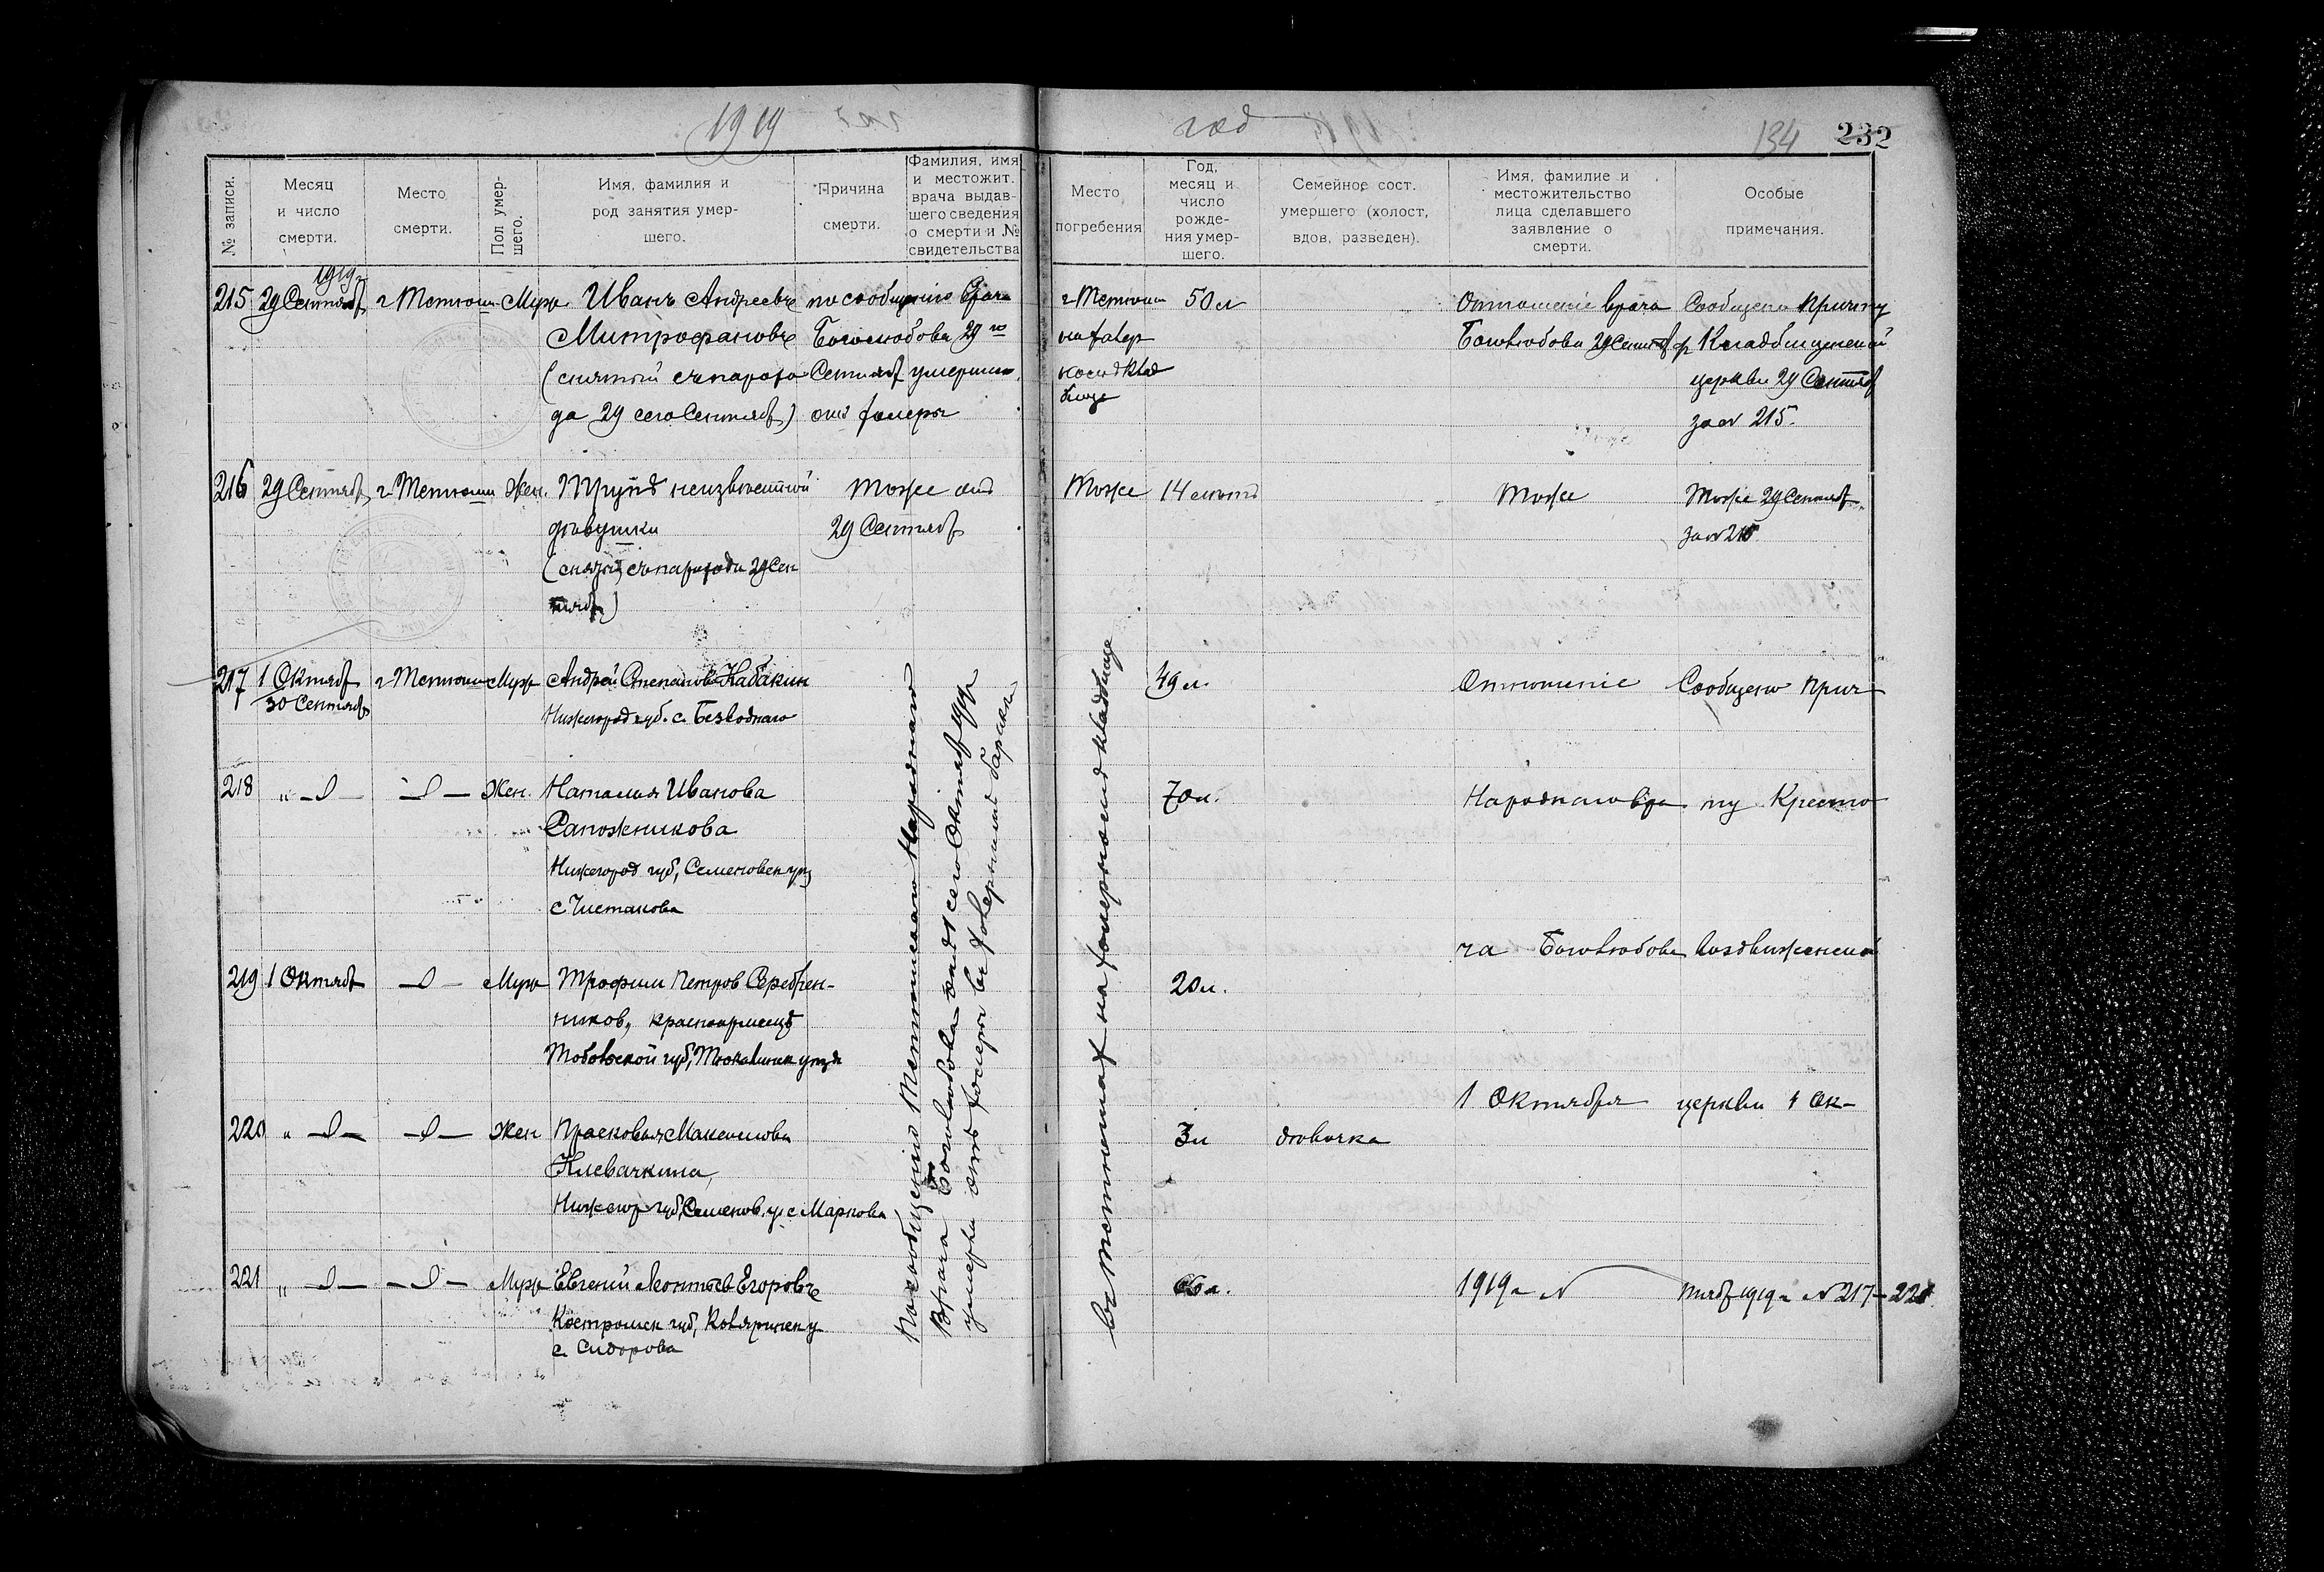 1919
год
134
232
№ записи.
Месяц
и число
смерти.
Место
смерти.
Пол умер-
шего.
Имя, фамилия и
род занятия умер-
шего.
Причина
смерти.
Фамилия, имя
и местожит.
врача выдав-
шего сведения
о смерти и №
свидетельства
Место
погребения
Год,
месяц и
число
рожде-
ния умер-
шего.
Семейное сост.
умершего (холост,
вдов, разведен).
Имя, фамилие и
местожительство
лица сделавшего
заявление о
смерти.
Особые
примечания.
215
1919
29 Сентяб
г Тетюши
Муж
Иванъ Андреевъ
Митрофановъ
(снятый съ парохо
да 29 сего Сентяб)
по сообщению Врача
Боголюбова 29 го
Сентяб умерши
отъ холеры
г Тетюши
на холер
номъ клад
бище
50 л
Отношеніе врача
Боголюбова 29 Сентяб
Сообщено Причту
Кладбищенской
церкви 29 Сентяб
за № 215.
216
29 Сентяб
г Тетюши
Жен.
Трупъ неизвестной
девушки
(снятый съ парохода 29 Сен
тяб)
Тоже отъ
29 Сентяб
Тоже
14 летъ
Тоже
Тоже 29 Сентяб
за №
217
1 Октяб
30 Сентяб
г Тетюши
Муж
Андрей Степановъ Кабакин
Нижегород губ. с. Безводнаго
49 л.
Отношеніе
Сообщено прич
218
" — —
— —
Жен.
Наталия Иванова
Сапожникова
Нижегород губ, Семеновск уез
с Чистакова
70 л.
Народнаго вра
ту Кресто
ча Боголюбова
воздвиженской
219
1 Октяб
— —
Муж
Трофим Петров Серебрен-
ников, красноармеецъ
Тобольской губ, Тюкалинск уезда
20 л.
1 Октября
церкви 1 Ок-
220
" — —
— —
Жен
Прасковья Максимова
Клевачкина,
Нижегор губ, Семенов. у. с Маркова
3 л
девочка
221
" — —
— —
Муж
Евгений Леонтьев Егоровъ
Костромск губ, Ковернинск у
с. Сидорова
66 л.
1919 г №
тяб 1919 г № 217 – 221
По сообщению Тетюшскаго Народнаго
Врача Боголюбова отъ 1 сего Октяб 1919 г
умерли отъ холеры въ холерномъ бараке
въ Тетюшах на холерномъ кладбище